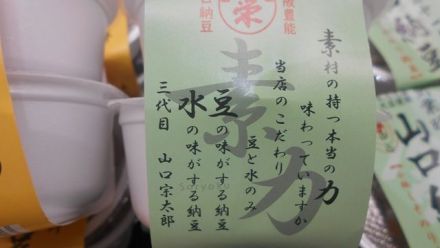 栄
阪豊能
納豆
素力
Soryoku
素材の持つ本当の力
味わっていますか
当店のこだわり
豆と水のみ
豆の味がする納豆
水の味がする納豆
三代目 山口宗太郎
山口